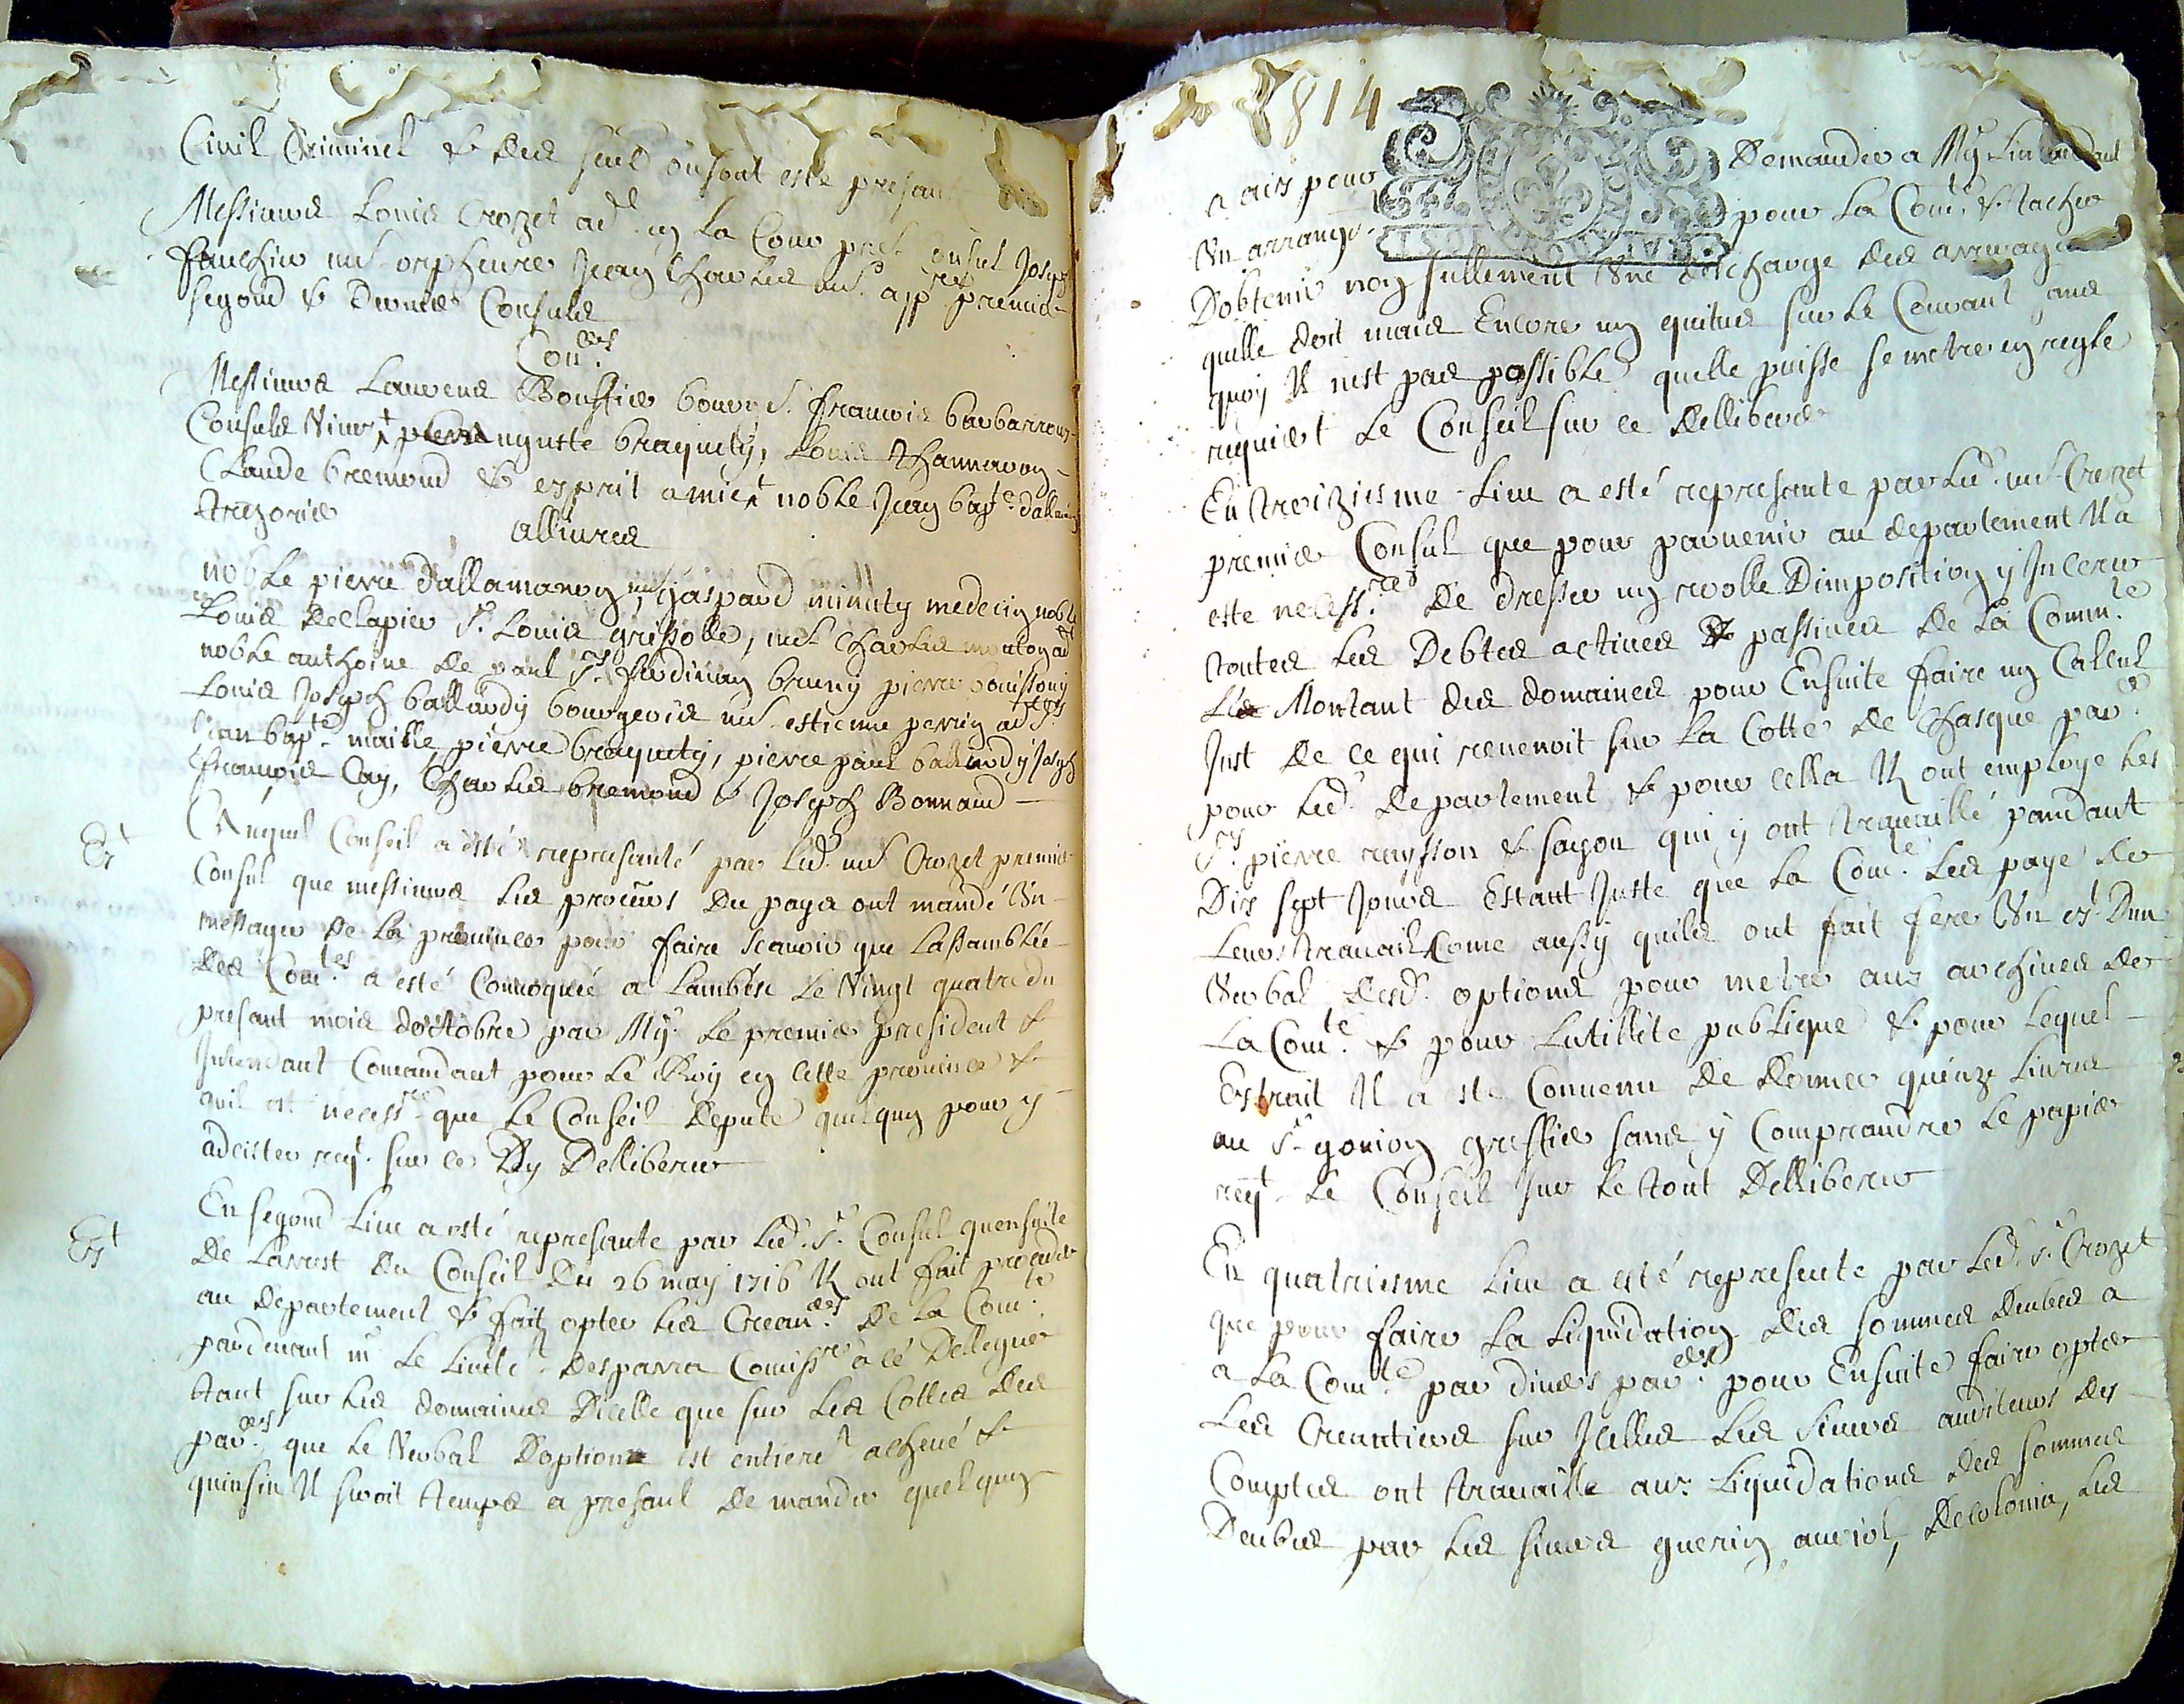 Civil Criminel & des seul ou sont esté presant
Messieurs Louis Crozet adt en la Cour prel consul Joseph
fauchier me orpheure Jean Charles me app.re premier
segond & Dernier Consuls
Con.ers
Messieurs Laurens Bouffier bourg. s. francois barbarroux
Consuls Vieux auguste braquety, Louis Channavon
Claude bremond & esprit amic noble Jean bap.te dallam
trezorier
alliures
noble pierre dallamanon, me gaspard minuty medecin noble
Louis Declapier s.r Louis grissolle, me Charles montagad
noble anthoine de paul s.rs ferdinan bruny pierre bouissony
Louis Joseph ballardy bourgeois me estienne perrin ad s.rs
Jean bap.te maille, pierre braquety, pierre paul ballardy Joseph
francois Cay, Charles bremond & Joseph Bonnaud
Auquel Conseil a esté representé par led. me Crozet premier
Ext
Consul que messieurs les procurs du pays ont mandé Un
messager de la province pour faire scavoir que Lassamblée
des Com.tes a esté Convoquée a Lambesc le Vingt quatre du
presant mois doctobre par Mgr. le premier president &
Intendant Comandant pour le Roy en cette province &
quil est necess.re que le Conseil depute quelquun pour y
adcister req.t sur ce Dy Delliberer
Ext
En segond lieu a esté represante par led. s.r Consul quensuite
De Larrest du Conseil du 26 may 1716 Il ont fait proceder
au departement & fait opter les Crean.ers de la Com.te
pardevant m.r le Lieute.t Desparra Comiss.re a cé Dellegué
tant sur les domaines dicelle que sur les Cottes des
par.ers que le Verbal doptions est entierem.t achevé &
quinsin Il seroit temps a presant de mander quelquun
1814
a aix pour Demander a Mgr Lintendant
Un arrange- pour la Com.te & tacher
Dobtenir non sullement Une descharge des arrerages
quelle doit mais Encore un quitus sur le Courant sans
quoy Il nest pas possible quelle puisse se metre en regle
requiert le Conseil sur ce Delliberer
En troiziesme Lieu a esté represante par led. me Crozet
premier Consul que pour parvenir au departement Il a
este necess.re De dresser un roolle Dimposition y Incerer
toutes les Debtes actives & passives de la Comm.te
Le Montant des domaines pour Ensuite faire un Calcul
Just De ce qui revenoit sur la Cotte de Chasque par.er
pour led. departement & pour cella Il ont employe les
s.rs pierre reysson & sagon qui y ont travaillé pandant
Dix sept Jours Estant Juste que la Com.te les paye de
Leur travail Come aussy quils ont fait fere Un ext Dun
Verbal desd. options pour metre aux archives de
La Com.te & pour Lutillite publique & pour lequel
Extrait Il a este Convenu de donner quinze livres
au s.r gonion greffier sans y Comprandre le papier
req.t le Conseil sur le tout Delliberer
En quatriesme lieu a esté represente par led. s.r Crozet
que pour faire la Liquidation des sommes deubes a
a la Com.te par divers par.ers pour Ensuite faire opter
les Creantiers sur Icelles les sieurs auditeurs des
Comptes ont travaille aux Liquidations des sommes
Deubes par les sieurs guerin, auriol, Decolonia, les